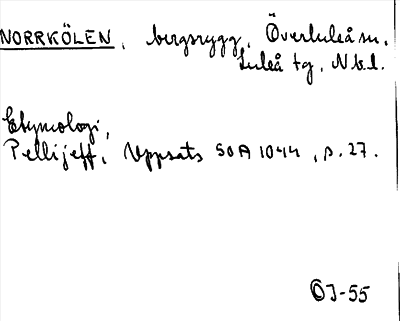 NORRKÖLEN, bergsrygg, Överluleå sn,
Luleå tg, Nbl.
Etymologi,
Pellijeff, Uppsats SOA 1044, s. 27.
ÖJ-55